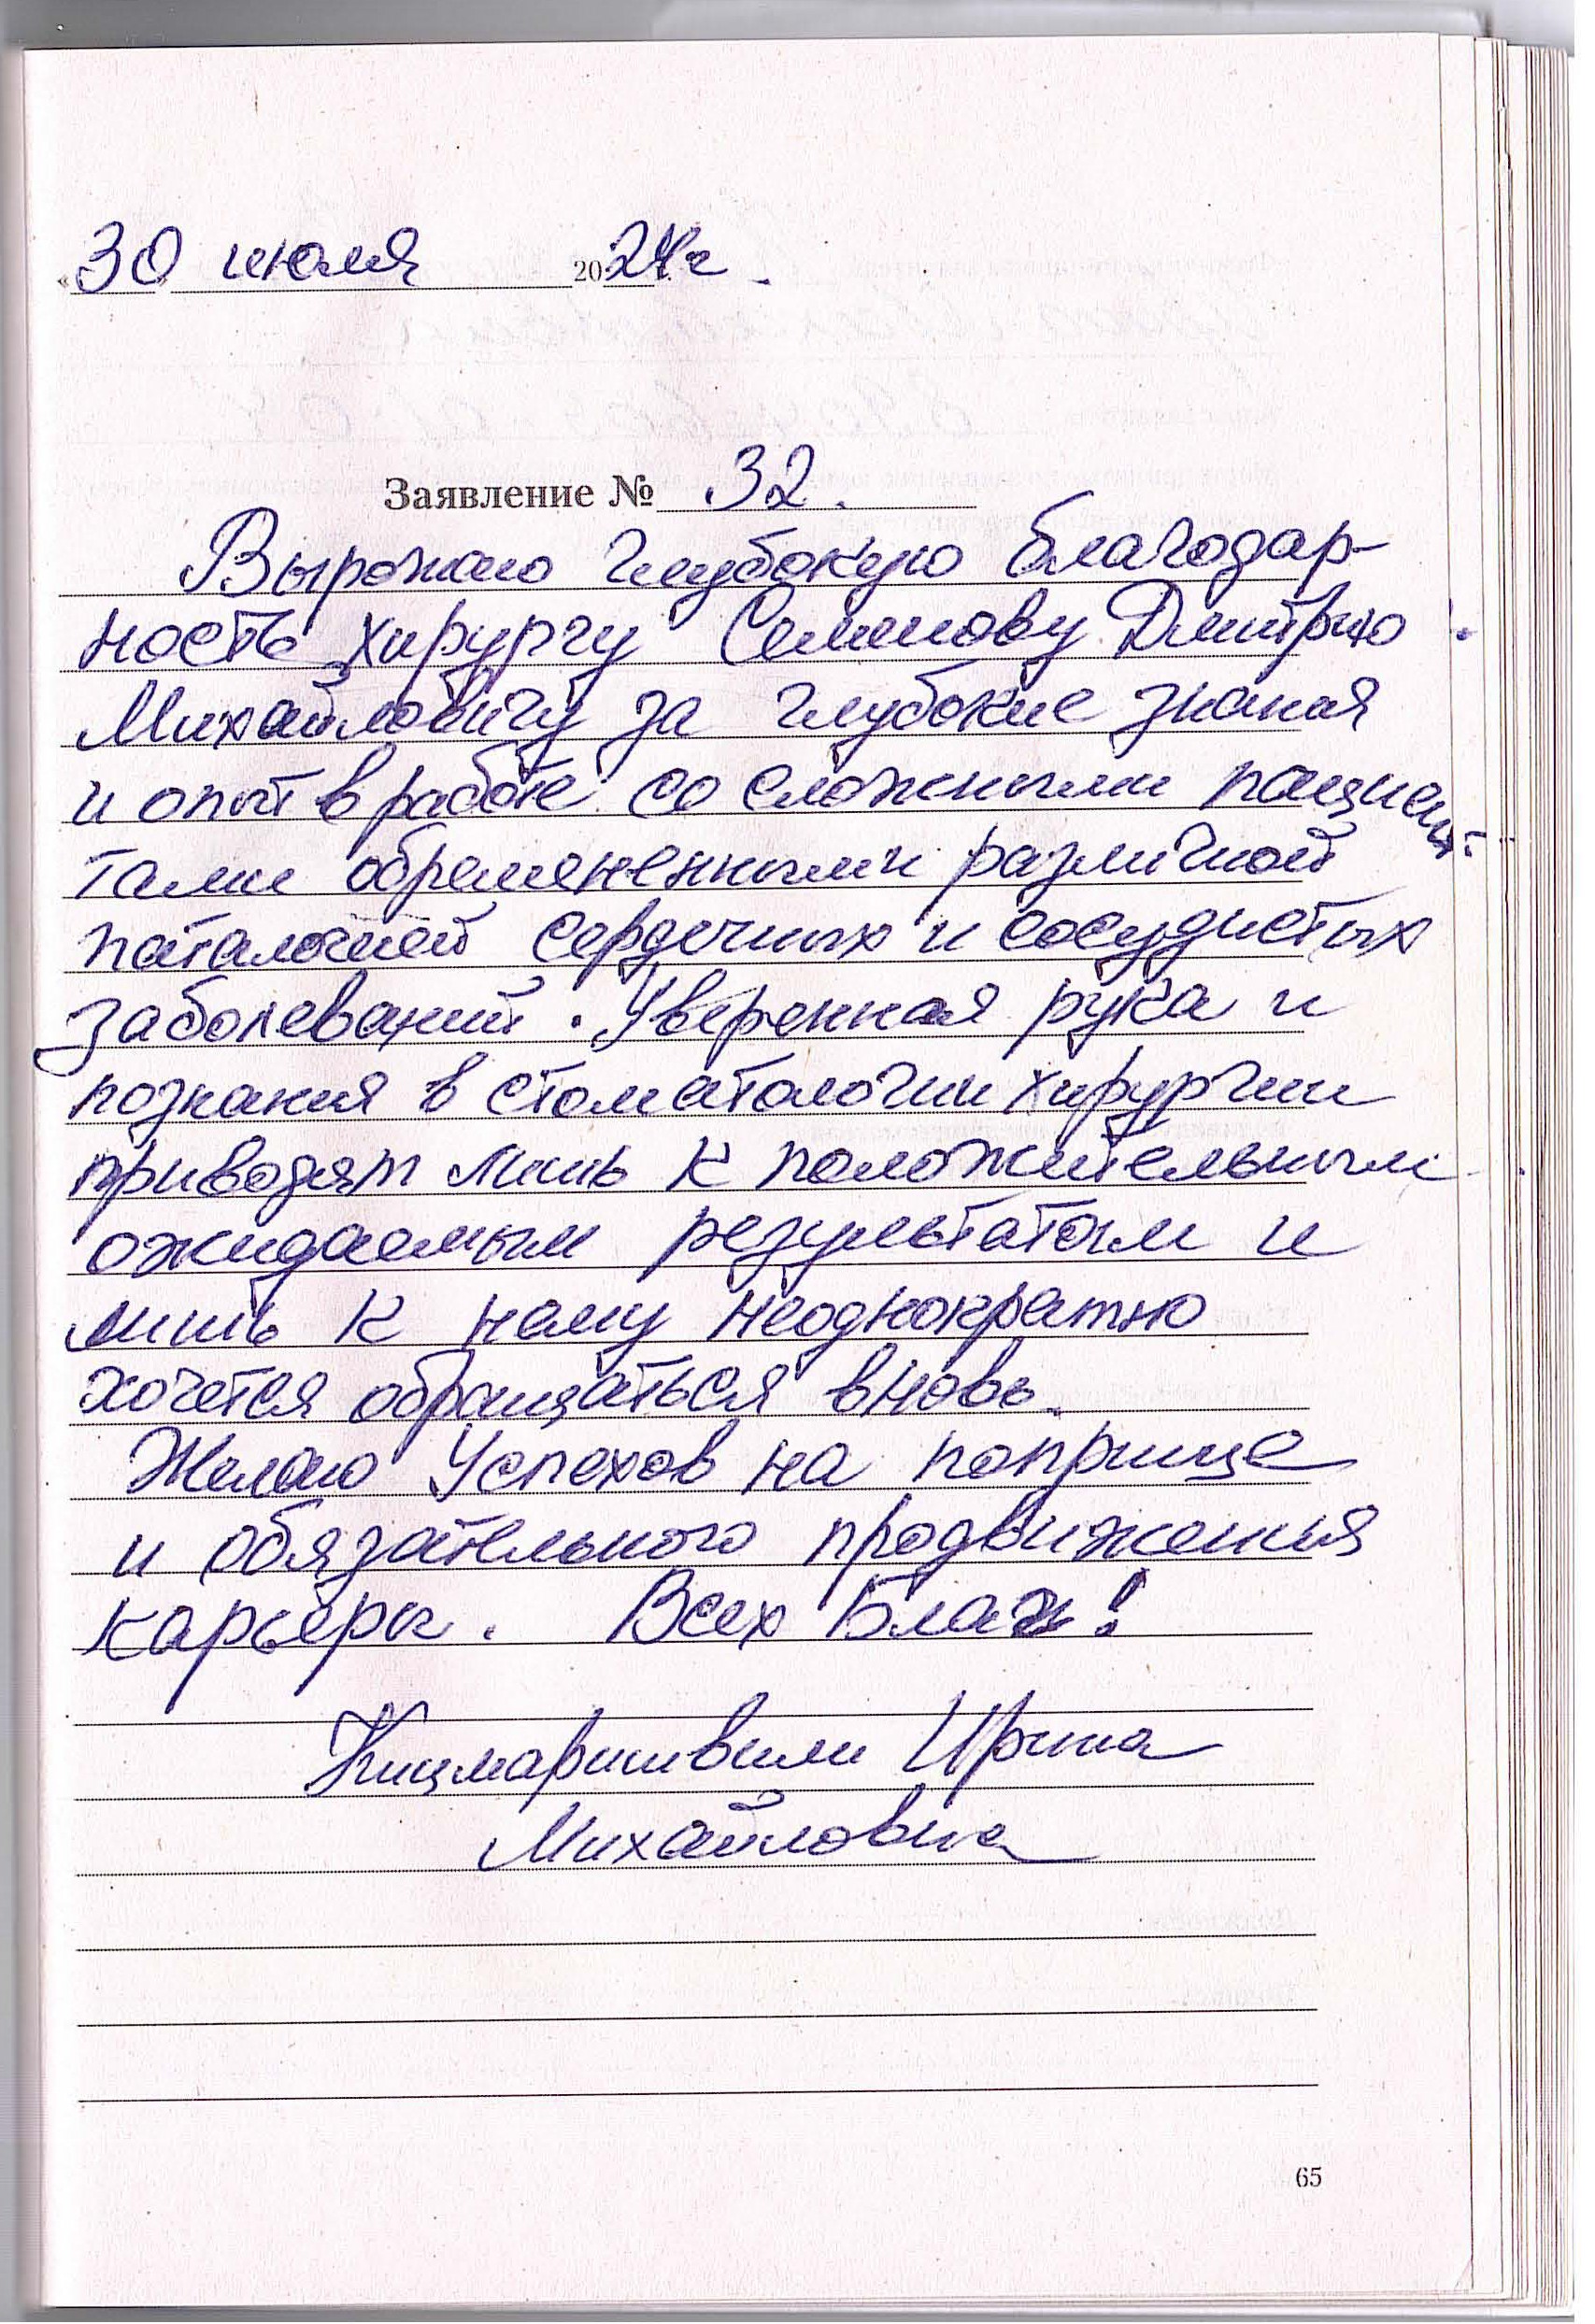 «30» июля 2024г.
Заявление № 32.
Выражаю глубокую благодар-
ность хирургу Семенову Дмитрию
Михайловичу за глубокие знания
и опыт в работе со сложными пациен-
тами обремененными различной
паталогией сердечных и сосудистых
заболеваний. Уверенная рука и
познания в стоматологии хирургии
приводят лишь к положительным
ожидаемым результатам и
лишь к нему неоднократно
хочется обращаться вновь.
Желаю Успехов на поприще
и обязательного продвижения
карьеры. Всех Благ!
Кицмаришвили Ирина
Михайловна
65